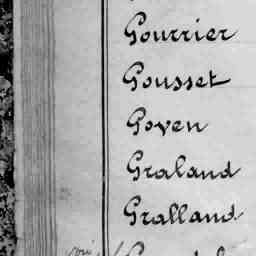 Gourrier
Gousset
Goven
Graland
Gralland